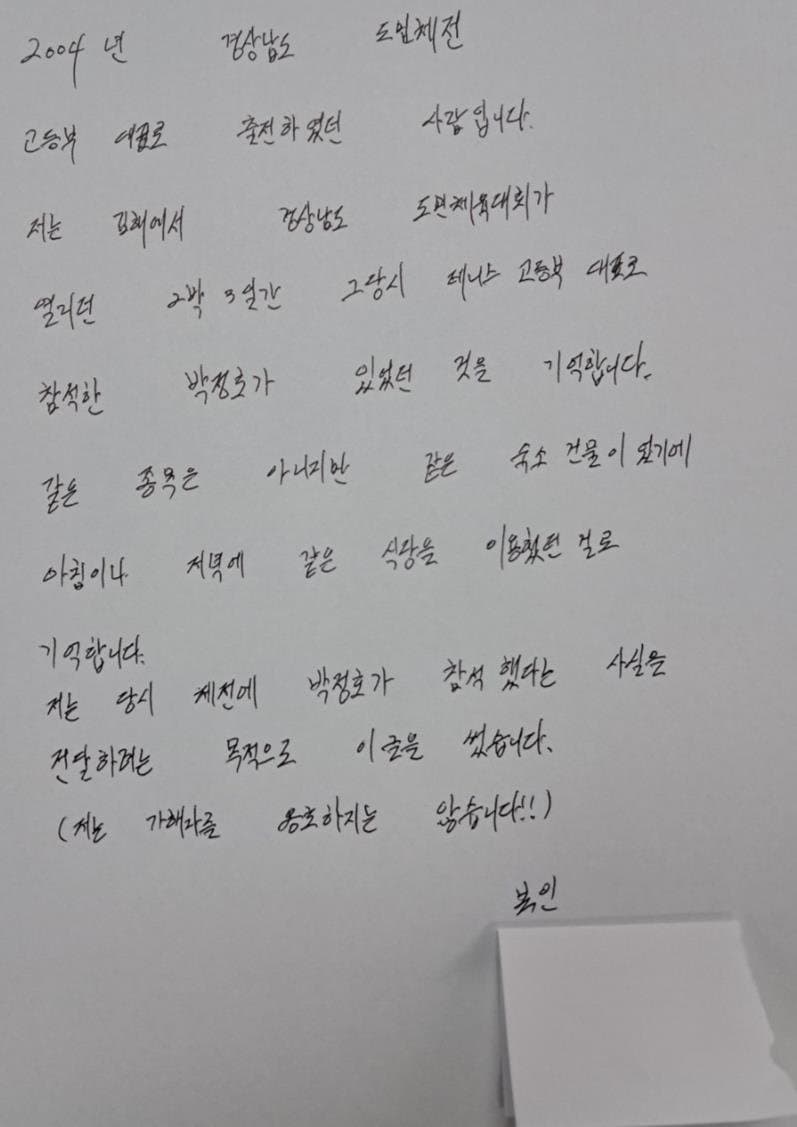 2004년 경상남도 도민체전
고등부 대표로 출전하였던 사람입니다.
저는 김해에서 경상남도 도민체육대회가
열리던 2박 3일간 그당시 테니스 고등부 대표로
참석한 박정호가 있었던 것을 기억합니다.
같은 종목은 아니지만 같은 숙소 건물이 었기에
아침이나 저녁에 같은 식당을 이용했던 걸로
기억합니다.
저는 당시 체전에 박정호가 참석 했다는 사실을
전달하려는 목적으로 이글을 썼습니다.
(저는 가해자를 옹호하지는 않습니다!!)
본인